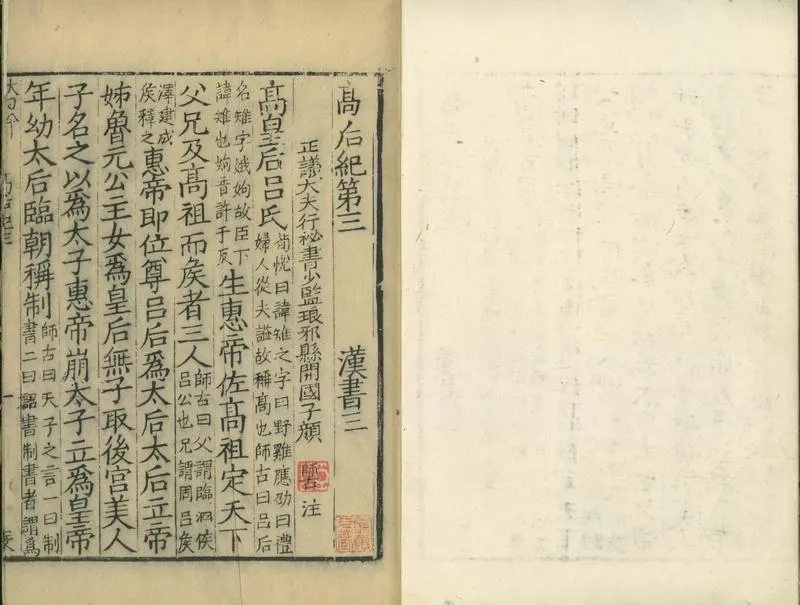 高后紀第三 漢書三
正議大夫行祕書少監琅邪縣開國子顏 師古 注
高皇后呂氏 荀悅曰諱雉之字曰野雞應劭曰禮婦人從夫諡故稱高也師古曰呂后
名雉字娥姁故臣下諱雉也姁音許于反 生惠帝佐高祖定天下
父兄及高祖而矦者三人 師古曰父謂臨泗矦呂公也兄謂周呂矦
澤建成矦釋之 惠帝即位尊呂后爲太后太后立帝
姊魯元公主女爲皇后無子取後宮美人
子名之以爲太子惠帝崩太子立爲皇帝
年幼太后臨朝稱制 師古曰天子之言一曰制書二曰詔書制書者謂爲